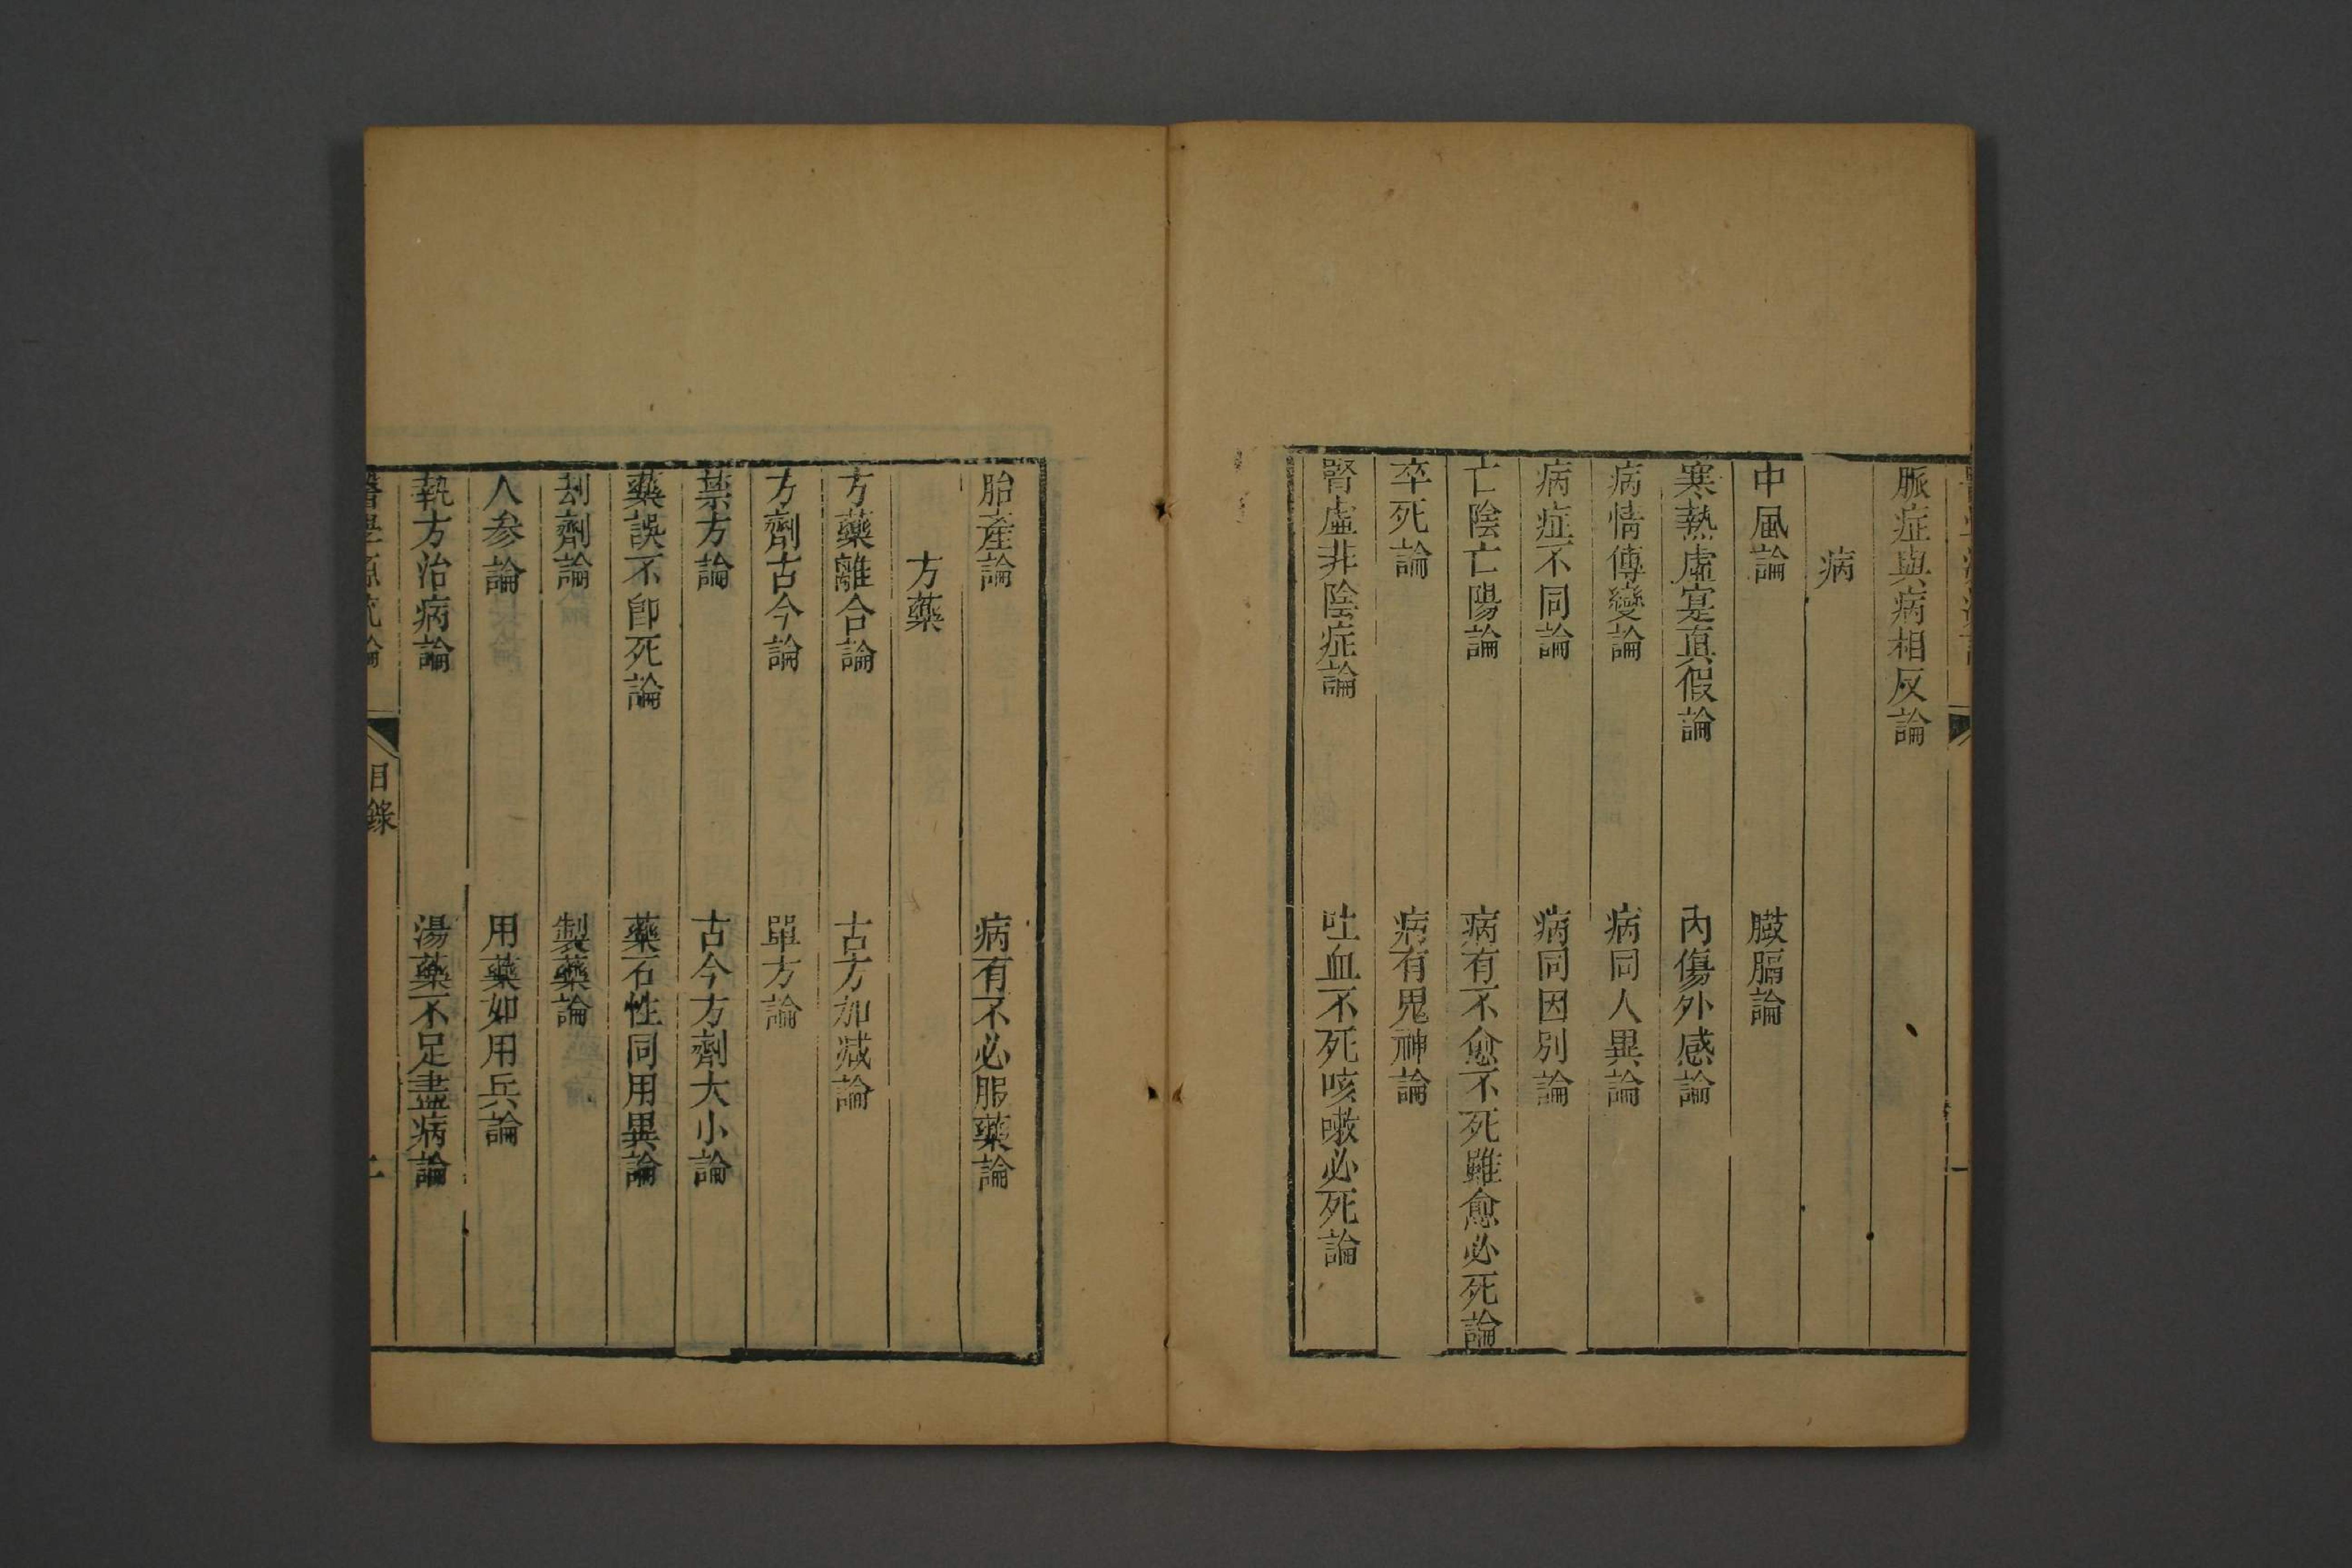 脈症與病相反論
病
中風論　臌膈論
寒熱虛寔真假論　內傷外感論
病情傳變論　病同人異論
病症不同論　病同因別論
亡陰亡陽論　病有不愈不死雖愈必死論
卒死論　病有鬼神論
腎虛非陰症論　吐血不死咳嗽必死論
胎產論　病有不必服藥論
方藥
方藥離合論　古方加减論
方劑古今論　單方論
禁方論　古今方劑大小論
藥誤不卽死論　藥石性同用異論
劫劑論　製藥論
人参論　用藥如用兵論
執方治病論　湯藥不足盡病論
目錄